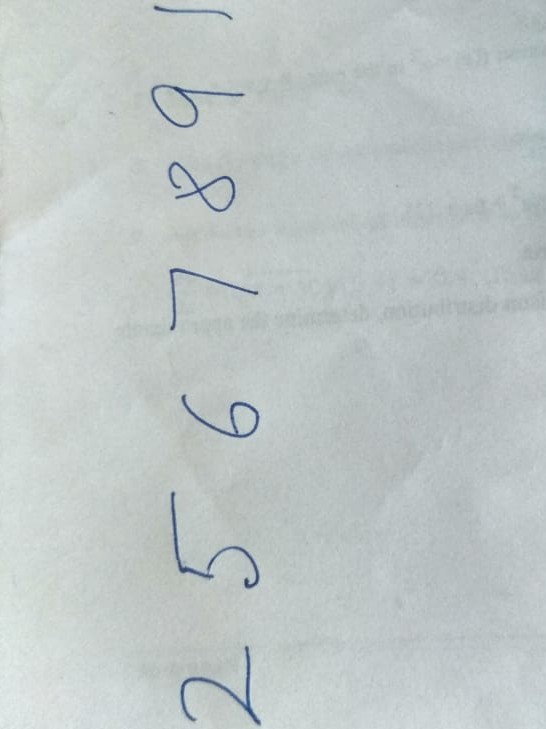 2 5 6 7 8 9 1